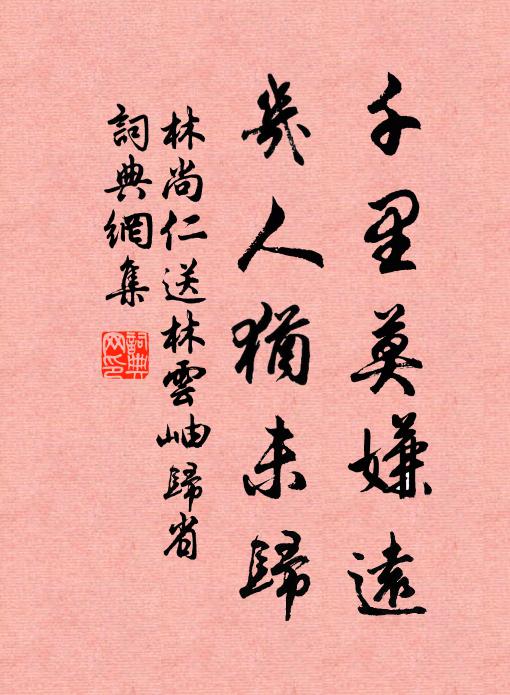 千里莫嫌遠
幾人猶未歸
林尚仁送林雲岫歸省
詞典網集
詞典網印